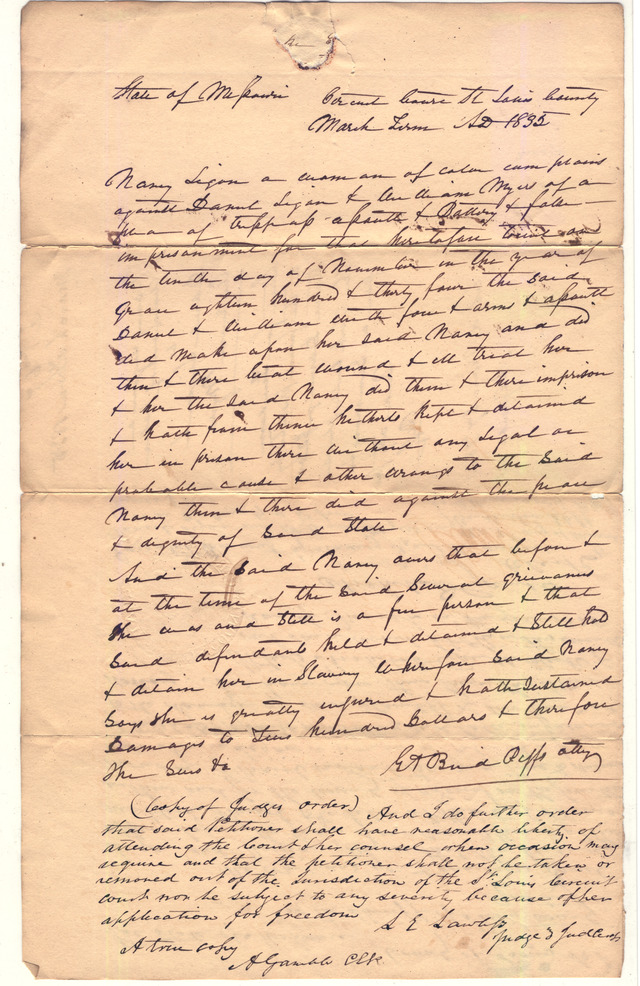 State of Missouri Circuit Court St Louis County
March Term AD 1835
Nancy Ligon a woman of color complains
against Daniel Ligon & William Myers of a
plea of trespass assault & Battery & false
imprisonment for that heretofore towit on
the tenth day of November in the year of
Grace eighteen hundred & thirty four the said
Daniel & William with force & arms & assault
did make upon her said Nancy and did
then & there beat wound & ill treat her
& her the said Nancy did then & there imprison
& hath from thence hitherto kept & detained
her in prison there without any legal or
probable cause & other wrongs to the said
Nancy then & there did against the peace
& dignity of said State
And the said Nancy avers that before &
at the time of the said several grievances
she was and still is a free person & that
said defendants held & detained & still hold
& detain her in Slavery wherefore said Nancy
says she is greatly injured & hath sustained
Damages to hundred Dollars & therefore
she sues &c
Plffs atty
(Copy of Judges order) And I do further order
that said Petitioner shall have reasonable liberty of
attending the Court & her counsel when occasion may
require and that the petitioner shall not be taken or
removed out of the Jurisdiction of the St Louis Circuit
court nor be subject to any severity because of her
application for freedom
L E Lawless
Judge 3 Jud Circt
A true copy
A Gamble Clk